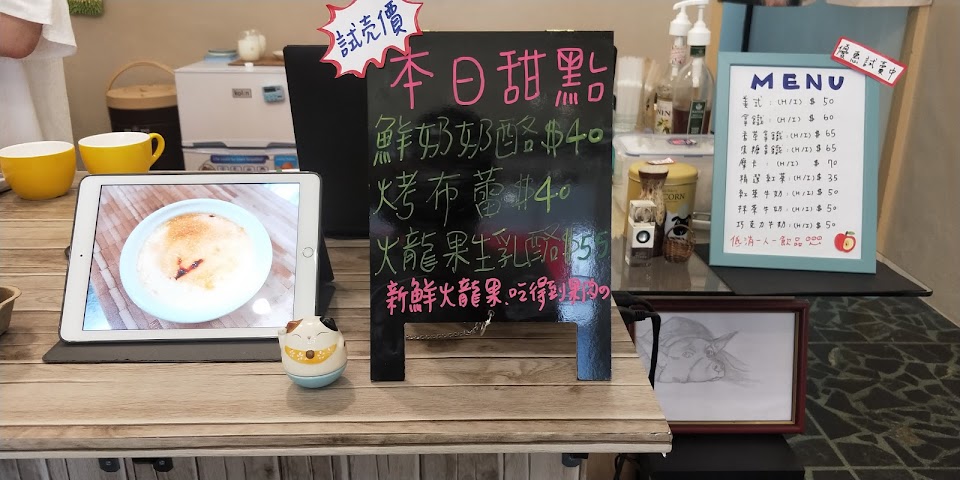 試売價
本日甜點
鮮奶奶酪$40
烤布蕾$40
火龍果生乳酪$55
新鮮火龍果、吃得到果肉の
優惠試賣中
MENU
美式:(H/I) $50
拿鐵:(H/I) $60
香草拿鐵:(H/I) $65
焦糖拿鐵:(H/I) $65
摩卡:(H/I) $70
精選紅茶:(H/I) $35
紅茶牛奶:(H/I) $50
抹茶牛奶:(H/I) $50
巧克力牛奶:(H/I) $50
低消一人一飲品